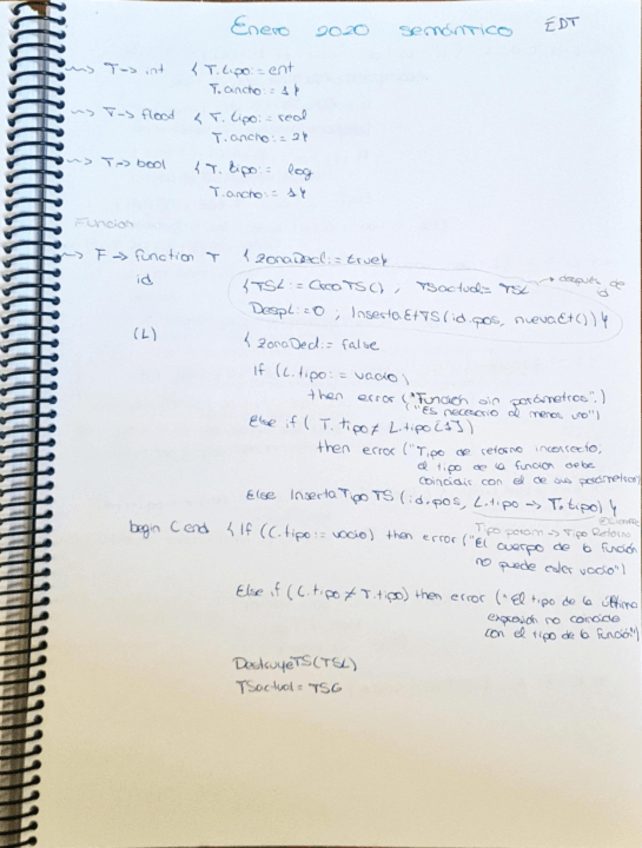 Enero 2020 semántico EDT
~~> T -> int { T.tipo:= ent
T.ancho:= 1}
~~> T -> float { T.tipo:= real
T.ancho:= 2}
~~> T -> bool { T.tipo:= log
T.ancho:= 1}
Función
~~> F -> function T { zonaDecl:= true}
id { TSL := CreaTS() , TSactual= TSL → después de id
Despl:=0 ; InsertaEtTS(id.pos, nuevaEt()) }
(L) { zonaDecl:= false
If (L.tipo:= vacio)
then error ("Función sin parámetros".)
("Es necesario al menos uno")
Else if ( T.tipo ≠ L.tipo[1])
then error ("Tipo de retorno incorrecto;
el tipo de la función debe
coincidir con el de sus parámetros)
Else InsertaTipoTS (id.pos, L.tipo → T.tipo) }
Tipo param → Tipo Retorno
begin C end { If (C.tipo:= vacio) then error ("El cuerpo de la función
no puede estar vacio")
Else if (C.tipo ≠ T.tipo) then error ("El tipo de la última
expresión no coincide
con el tipo de la función")
DestruyeTS(TSL)
TSactual = TSG